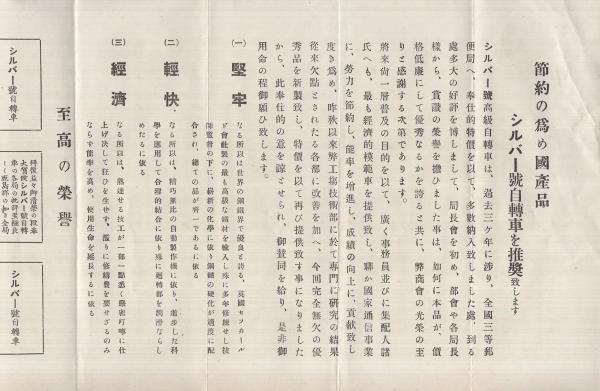 節約の爲め國產品
シルバー號自轉車を推奬致します
シルバー號高級自轉車は、過去三ケ年に渉り、全國三等郵
便局へ、奉仕的特價を以て、多數納入致しました處、到る
處多大の好評を博しまして、局長會を初め、部會や各局長
樣から、賞讃の榮譽を擔ひました事は、如何に本品が、價
格低廉にして優秀なるかを誇ると共に、弊商會の光榮の至
りと感謝する次第であります。
將來尙一層普及の目的を以て、廣く事務員並びに集配人諸
氏へも、最も經濟的模範車を提供致し、聊か國家通信事業
に、勞力を節約し、能率を增進し、成績の向上に、貢獻致し
度き爲め、昨秋以來弊工場技術部に於て專門に硏究の結果
從來欠點とされたる各部に改善を加へ、今回完全無欠の優
秀品を新製致し、特價を以て再び提供する事になりました
から、此奉仕的の意を諒とせられ、御賛同を給り、是非御
用命の程御願ひ致します。
(一) 堅牢
なる所以は世界の鋼鐵界で優良と誇る、英國セフヰール
ド會社製の最も高級な鋼材を輸入し多年修練せし技
師監督の下に、最新の化學に依り鋼鐵の硬化が適度に配
合され、總ての品が齊一であるに依る
(二) 輕快
なる所以は、精巧無比の自動製作機に依り、進步した科
學を應用して合理的結合に依り殊に廻轉部を潤滑ならし
めたるに依る
(三) 經濟
なる所以は、熟達せる技工が一部一點悉く懇密叮嚀に仕
上げ決して狂ひを生ぜず、濫りに修繕費を要せざるのみ
ならず能率を高め、使用生命を延長するに依る
至高の榮譽
シルバー號自轉車
シルバー號自轉車